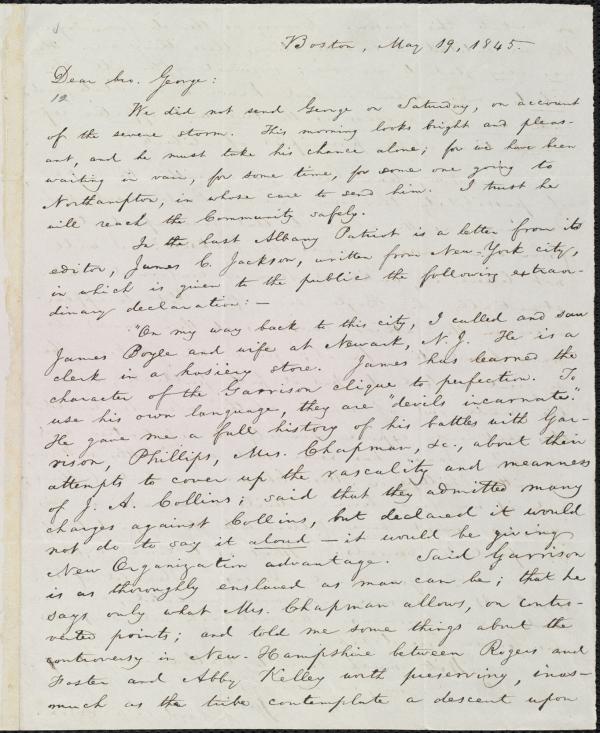 Boston, May 19, 1845.
Dear bro. George:
12
We did not send George on Saturday, on account
of the severe storm. This morning looks bright and pleas-
ant, and he must take his chance alone; for we have been
waiting in vain, for some time, for some one going to
Northampton, in whose care to send him. I trust he
will reach the Community safely.
In the last Albany Patriot is a letter from its
editor, James C. Jackson, written from New-York city,
in which is given to the public the following extraor-
dinary declaration:—
"On my way back to this city, I called and saw
James Boyle and wife at Newark, N.J. He is a
clerk in a hosiery store. James has learned the
character of the Garrison clique to perfection. To
use his own language, they are "devils incarnate."
He gave me a full history of his battles with Gar-
rison, Phillips, Mrs. Chapman, &c., about their
attempts to cover up the rascality and meanness
of J. A. Collins; said that they admitted many
charges against Collins, but declared it would
not do to say it aloud — it would be giving
New Organization advantage. Said Garrison
is as thoroughly enslaved as man can be; that he
says only what Mrs. Chapman allows, on contro-
verted points; and told me some things about the
controversy in New-Hampshire between Rogers and
Foster and Abby Kelley worth preserving, inas-
much as the tribe contemplate a descent upon